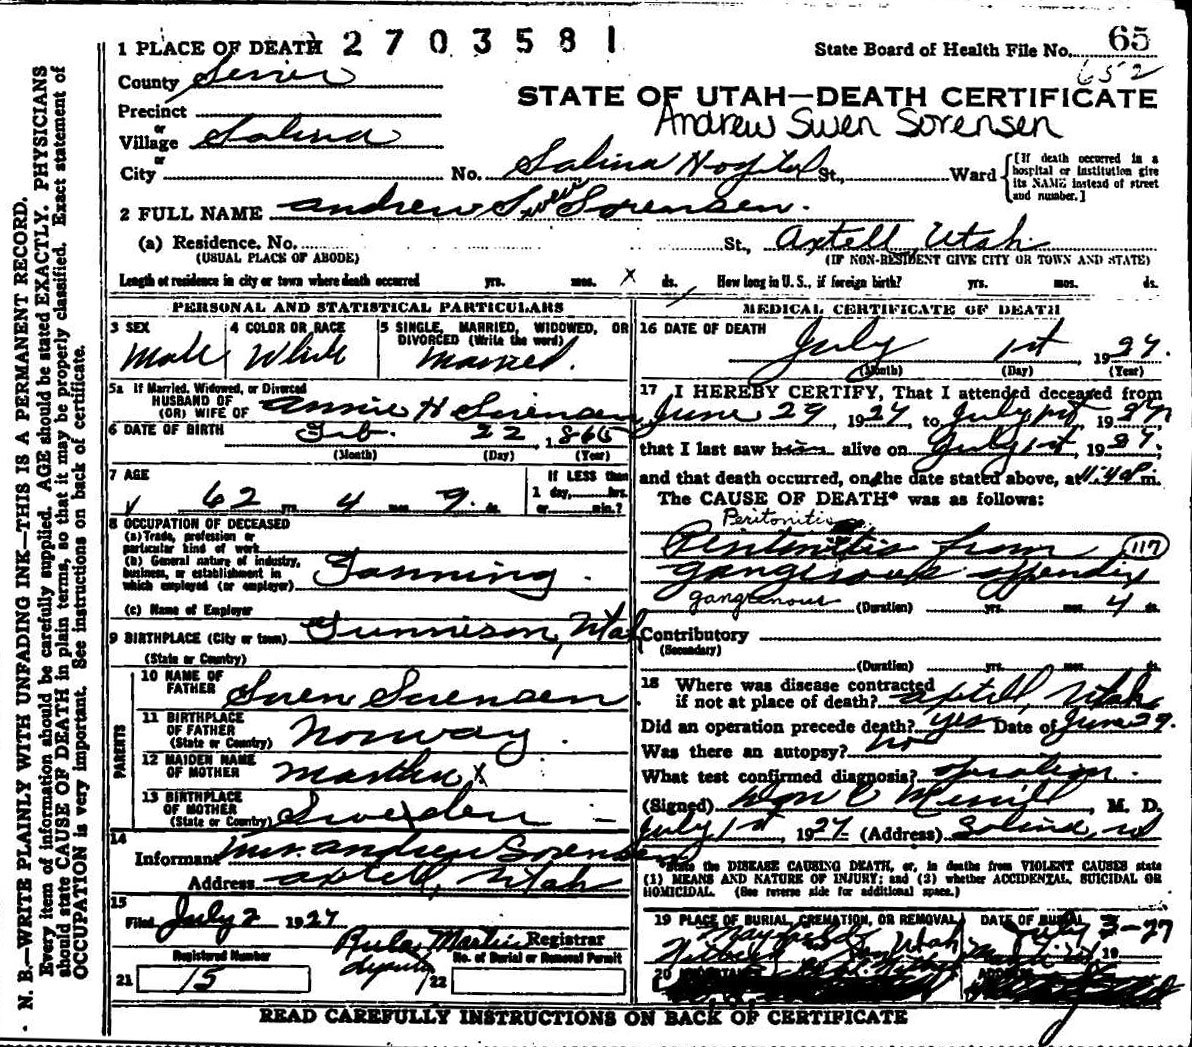 1 PLACE OF DEATH 2 7 0 3 5 8 1
State Board of Health File No. 65
652
County Sevier
STATE OF UTAH—DEATH CERTIFICATE
Precinct
Andrew Swen Sorensen
or
Village Salina
or
City No. Salina Hospital St., Ward { [If death occurred in a hospital or institution give its NAME instead of street and number.]
2 FULL NAME Andrew Swen Sorensen.
(a) Residence. No. St., Axtell, Utah
(USUAL PLACE OF ABODE) (IF NON-RESIDENT GIVE CITY OR TOWN AND STATE)
Length of residence in city or town where death occurred yrs. mos. X ds. How long in U. S., if foreign birth? yrs. mos. ds.
PERSONAL AND STATISTICAL PARTICULARS
3 SEX Male
4 COLOR OR RACE White
5 SINGLE, MARRIED, WIDOWED, OR DIVORCED (Write the word) Married.
5a If Married, Widowed, or Divorced
HUSBAND OF
(OR) WIFE OF Annie H Sorensen
6 DATE OF BIRTH Feb. 22 1865
(Month) (Day) (Year)
7 AGE 62 yrs. 4 mos. 9 ds.
If LESS than
1 day, hrs.
or min.?
8 OCCUPATION OF DECEASED
(a) Trade, profession or
particular kind of work
(b) General nature of industry,
business, or establishment in
which employed (or employer) Farming.
(c) Name of Employer
9 BIRTHPLACE (City or town) Gunnison, Utah
(State or Country)
PARENTS
10 NAME OF FATHER Soren Sorensen
11 BIRTHPLACE OF FATHER (State or Country) Norway.
12 MAIDEN NAME OF MOTHER Martha X
13 BIRTHPLACE OF MOTHER (State or Country) Sweden —
14
Informant Mrs. Andrew Sorensen
Address Axtell, Utah
15
Filed July 2 1927
Rula Martin Registrar
deputy
Registered Number
21 15
No. of Burial or Removal Permit
22
MEDICAL CERTIFICATE OF DEATH
16 DATE OF DEATH
July 1st, 1927.
(Month) (Day) (Year)
17 I HEREBY CERTIFY, That I attended deceased from
June 29, 1927, to July 1st, 1927,
that I last saw him alive on July 1st, 1927,
and that death occurred, on the date stated above, at m.
The CAUSE OF DEATH* was as follows:
Peritonitis
Peritonitis from 117
gangerous appendix
gangrenous (Duration) yrs. mos. 4 ds.
Contributory
(Secondary)
(Duration) yrs. mos. ds.
18 Where was disease contracted
if not at place of death? Axtell, Utah.
Did an operation precede death? yes Date of June 29.
Was there an autopsy? no
What test confirmed diagnosis?
(Signed) Merrill, M. D.
July 1st, 1927 (Address) Salina, Ut
*State the DISEASE CAUSING DEATH, or, in deaths from VIOLENT CAUSES state
(1) MEANS AND NATURE OF INJURY; and (2) whether ACCIDENTAL, SUICIDAL OR
HOMICIDAL. (See reverse side for additional space.)
19 PLACE OF BURIAL, CREMATION, OR REMOVAL DATE OF BURIAL
Mayfield Utah July 3-27
20
READ CAREFULLY INSTRUCTIONS ON BACK OF CERTIFICATE
N. B.—WRITE PLAINLY WITH UNFADING INK—THIS IS A PERMANENT RECORD.
Every item of information should be carefully supplied. AGE should be stated EXACTLY. PHYSICIANS
should state CAUSE OF DEATH in plain terms, so that it may be properly classified. Exact statement of
OCCUPATION is very important. See instructions on back of certificate.